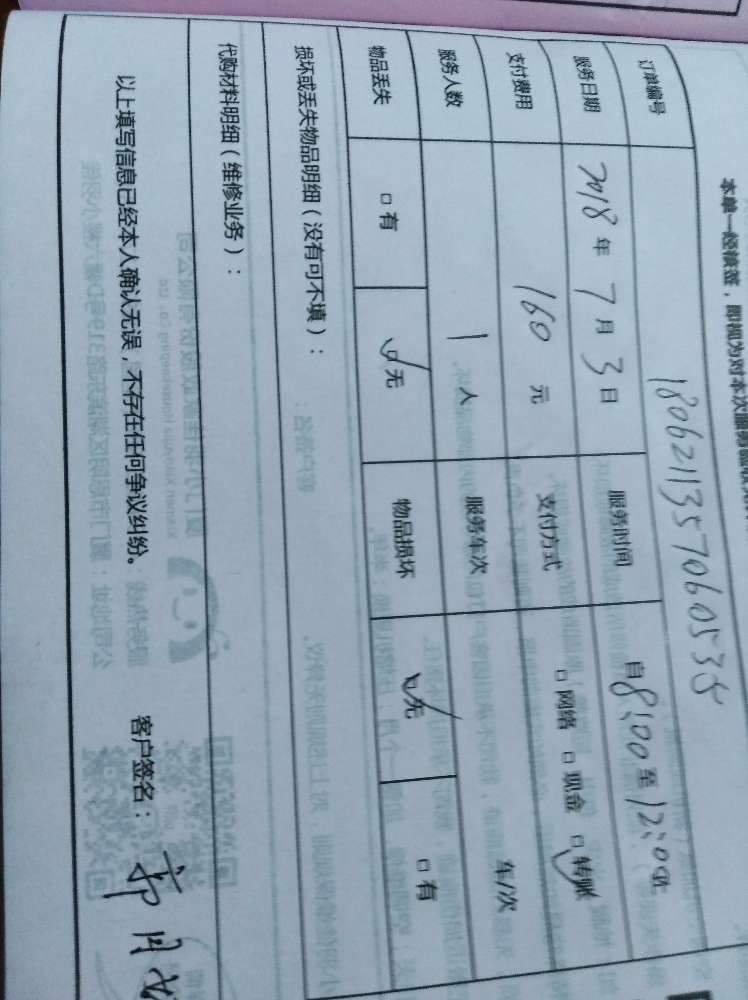 本单一经核签，即视为对本次服务
订单编号 180621135706053
服务日期 2018年7月3日 服务时间 自8:00至12:00
支付费用 160元 支付方式 □网络 □现金 □转账
服务人数 1人 服务车次 车/次
物品丢失 □有 □无 物品损坏 □无 □有
损坏或丢失物品明细（没有可不填）：
代购材料明细（维修业务）：
以上填写信息已经本人确认无误，不存在任何争议纠纷。 客户签名：